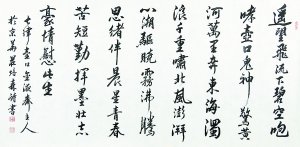 遥望飛流下碧空咆
哮壺口鬼神驚黄
河萬里奔東海濁
浪千重嘯北風澎湃
心潮驅曉霧沸騰
思緒伴晨星青春
苦短勤揮墨壮志
豪情慰此生
七律壺口
於京